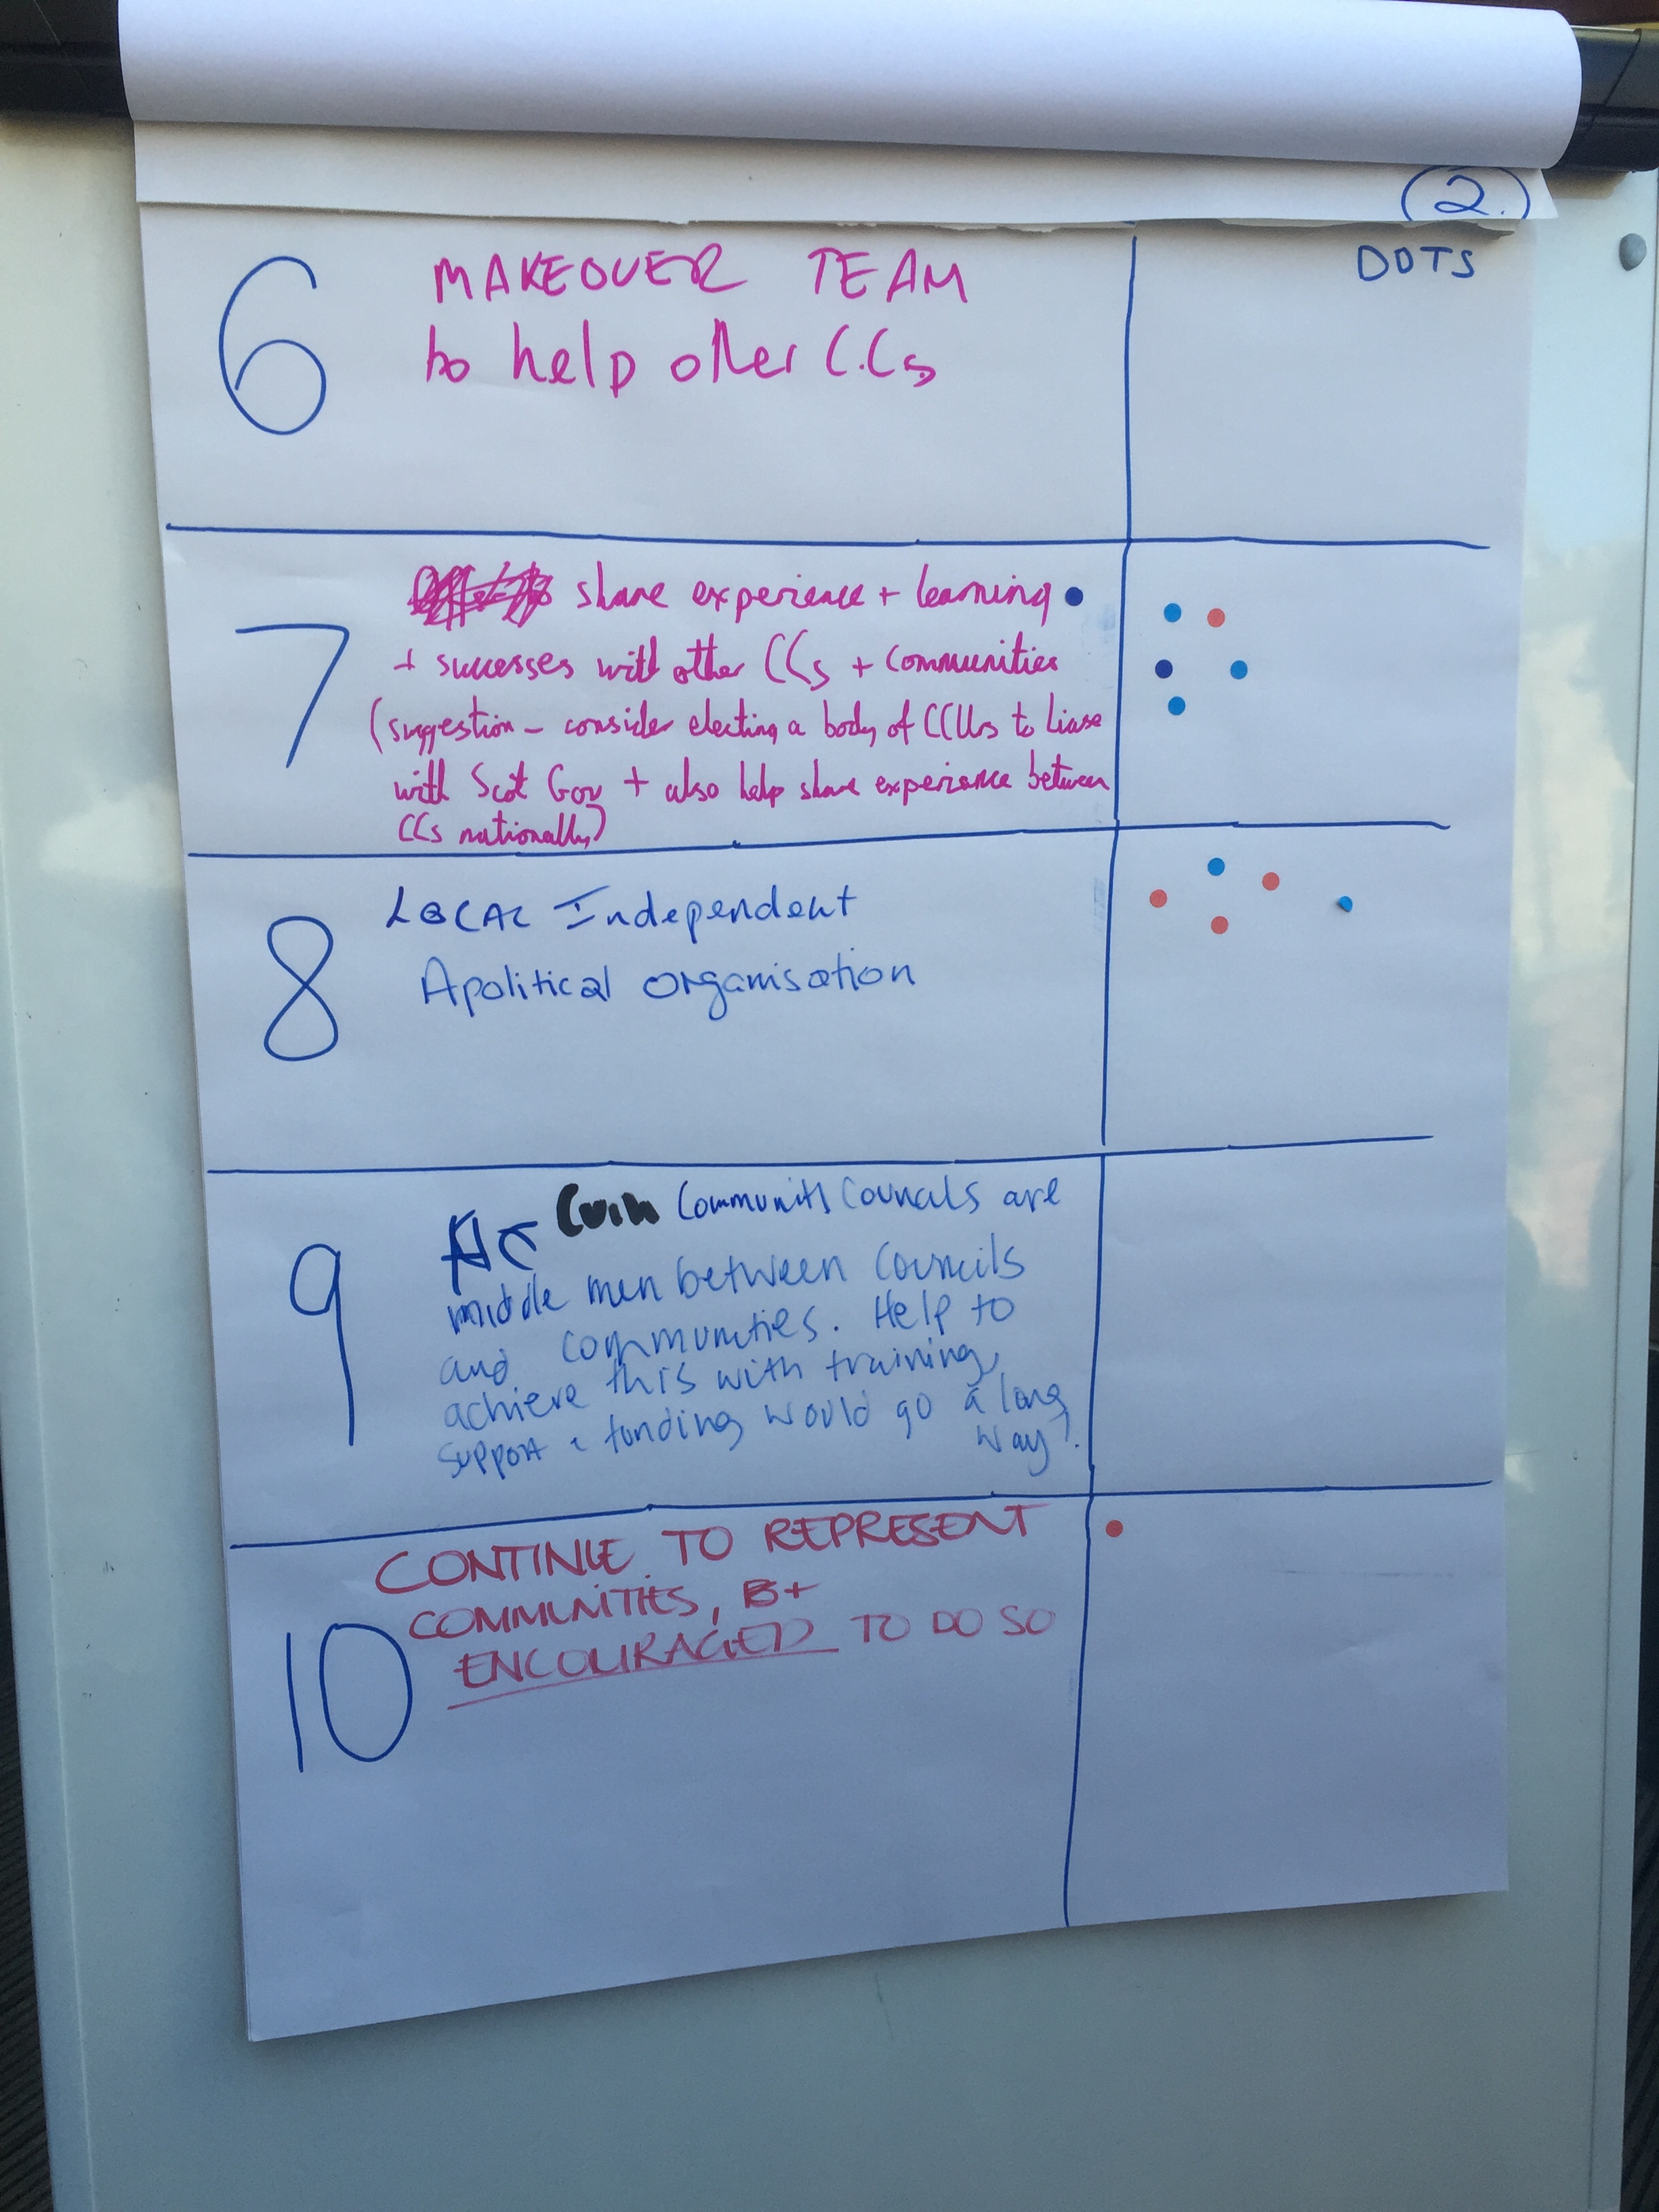 2.
DOTS
6
MAKEOVER TEAM
to help other C.Cs
7
share experience + learning
+ successes with other CCs + communities
(suggestion - consider electing a body of CCllrs to liase
with Scot Gov + also help share experience between
CCs nationally)
8
LOCAL Independent
Apolitical organisation
9
Community Councals are
middle men between Councils
and communities. Help to
achieve this with training,
support & funding would go a long
way!.
10
CONTINUE TO REPRESENT
COMMUNITIES, B+
ENCOURAGED TO DO SO